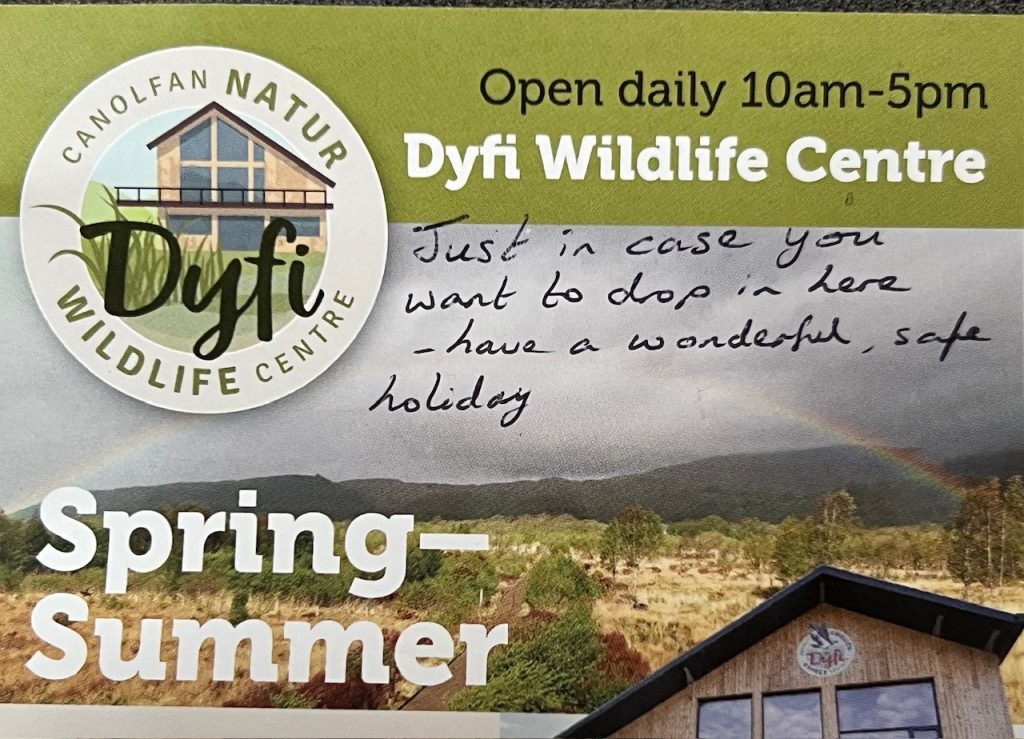 CANOLFAN NATUR
Dyfi
WILDLIFE CENTRE
Open daily 10am-5pm
Dyfi Wildlife Centre
Just in case you
want to drop in here
- have a wonderful, safe
holiday
Spring–
Summer
Dyfi